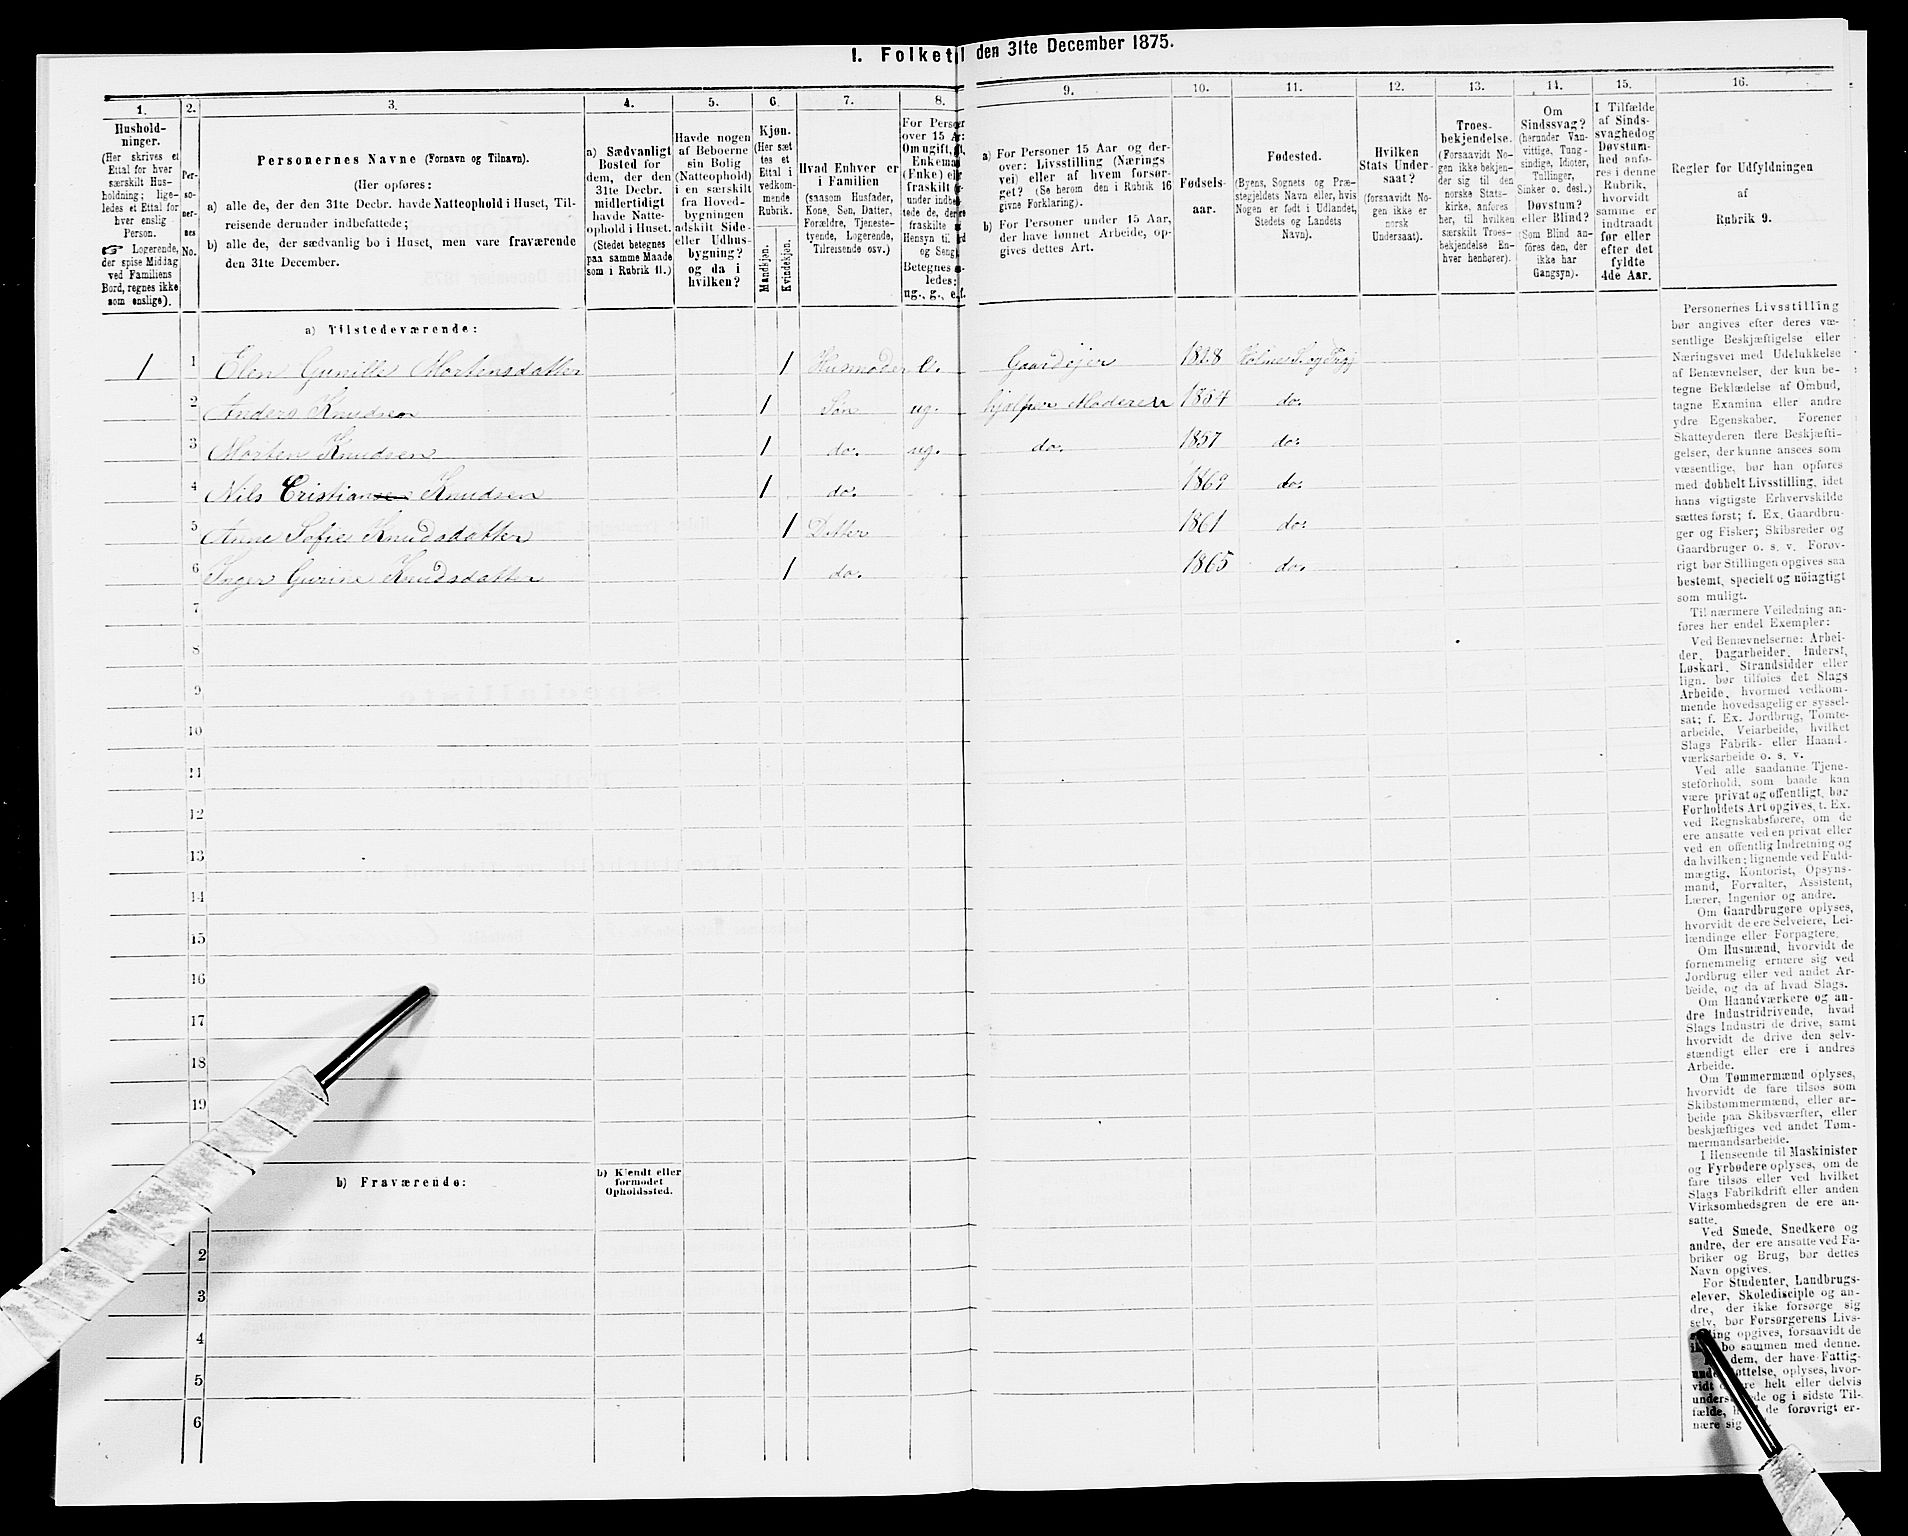 I. Folketæl den 31te December 1875.
1.
Hushold-
ninger.
(Her skrives et
Ettal for hver
særskilt Hus-
holdning; lige-
ledes et Ettal for
hver enslig
Person.
☞ Logerende,
der spise Middag
ved Familiens
Bord, regnes ikke
som enslige).
2.
Per-
so-
ner-
nes
No.
3.
Personernes Navne (Fornavn og Tilnavn).
(Her opføres:
a) alle de, der den 31te Decbr. havde Natteophold i Huset, Til-
reisende derunder indbefattede;
b) alle de, der sædvanlig bo i Huset, men vare fraværende
den 31te December.
4.
a) Sædvanligt
Bosted for
dem, der den
31te Decbr.
midlertidigt
havde Natte-
ophold i Huset.
(Stedet betegnes
paa samme Maade
som i Rubrik 11.)
5.
Havde nogen
af Beboerne
sin Bolig
(Natteophold)
i en særskilt
fra Hoved-
bygningen
adskilt Side-
eller Udhus-
bygning?
og da i
hvilken?
6.
Kjøn.
(Her sæt
tes et
Ettal i
vedkom-
mende
Rubrik.
Mandkjøn.
Kvindekjøn.
7.
Hvad Enhver er
i Familien
(saasom Husfader,
Kone, Søn, Datter,
Forældre, Tjeneste-
tyende, Logerende,
Tilreisende osv.)
8.
For Person
over 15 A
Om ugift,
Enkema
(Enke) el
fraskilt
under indbe
tede de, de
fraskilte
Hensyn til
og Seng
Betegnes
ledes:
ug., g., e. f.
9.
a) For Personer 15 Aar og der-
over: Livsstilling (Nærings
vei) eller af hvem forsør-
get? (Se herom den i Rubrik 16
givne Forklaring).
b) For Personer under 15 Aar,
der have lønnet Arbeide, op-
gives dettes Art.
10.
Fødsels-
aar.
11.
Fødested.
(Byens, Sognets og Præ-
stegjeldets Navn eller, hvis
Nogen er født i Udlandet,
Stedets og Landets
Navn).
12.
Hvilken
Stats Under-
saat?
(forsaavidt No-
gen ikke er
norsk
Undersaat).
13.
Troes-
bekjendelse.
(Forsaavidt No-
gen ikke bekjen-
der sig til den
norske Stats-
kirke, anføres
her, til hvilken
særskilt Troes-
bekjendelse En-
hver henhører).
14.
Om
Sindssvag?
(herunder Van-
vittige, Tung-
sindige, Idioter,
Tullinger,
Sinker o. desl.)
Døvstum?
eller Blind?
(Som Blind an-
føres den, der
ikke har
Gangsyn).
15.
I Tilfælde
af Sinds-
svaghed og
Døvstum-
hed anfø-
res i denne
Rubrik,
hvorvidt
samme er
indtraadt
før eller
efter det
fyldte
4de Aar.
16.
Regler for Udfyldningen
af
Rubrik 9.
a) Tilstedeværende:
1 1 Elen Gunille Mortensdatter 1 Husmoder e. Gaardejer 1828
2 Anders Knudsen 1 Søn ug. hjælper Moderen 1854 do.
3 Morten Knudsen 1 do. ug. do. 1857 do.
4 Nils Cristiansen Knudsen 1 do. 1869 do.
5 Anne Sofie Knudsdatter 1 Datter 1861 do.
6 Inger Gurine Knudsdatter 1 do. 1865 do.
7
8
9
10
11
12
13
14
15
16
17
18
19
b) Fraværende:
b) Kjendt eller
formodet
Opholdssted.
2
3
4
5
6
Personernes Livsstilling
bør angives efter deres væ-
sentlige Beskjæftigelse eller
Næringsvei med Udelukkelse
af Benævnelser, der kun be-
tegne Beklædelse af Ombud,
tagne Examina eller andre
ydre Egenskaber. Forener
Skatteyderen flere Beskjæfti-
gelser, der kunne ansees som
væsentlige, bør han opføres
med dobbelt Livsstilling, idet
hans vigtigste Erhvervskilde
sættes først; f. Ex. Gaardbru-
ger og Fisker; Skibsreder og
Gaardbruger o. s. v. Forøv-
rigt bør Stillingen opgives saa
bestemt, specielt og nöiagtigt
som muligt.
Til nærmere Veiledning an-
føres her endel Exempler:
Ved Benævnelserne: Arbei-
der, Dagarbeider, Inderst,
Løskarl, Strandsidder eller
lign. bør tilføies det Slags
Arbeide, hvormed vedkom-
mende hovedsagelig er syssel-
sat; f. Ex. Jordbrug, Tomte-
arbeide, Veiarbeide, hvilket
Slags Fabrik- eller Haand-
værksarbeide o. s. v.
Ved alle saadanne Tjene-
steforhold, som baade kan
være privat og offentligt, bør
Forholdets Art opgives, t. Ex.
ved Regnskabsførere, om de
ere ansatte ved en privat eller
ved en offentlig Indretning og
da hvilken; lignende ved Fuld-
mægtig, Kontorist, Opsyns-
mand, Forvalter, Assistent,
Lærer, Ingeniør og andre.
Om Gaardbrugere oplyses,
hvorvidt de ere Selveiere, Lei-
lændinge eller Forpagtere.
Om Husmænd, hvorvidt de
fornemmelig ernære sig ved
Jordbrug eller ved andet Ar-
beide, og da af hvad Slags.
Om Haandværkere og an-
dre Industridrivende, hvad
Slags Industri de drive, samt
hvorvidt de drive den selv-
stændigt eller ere i andres
Arbeide.
Om Tømmermænd oplyses,
hvorvidt de fare tilsøs som
Skibstømmermænd, eller ar-
beide paa Skibsværfter, eller
beskjæftiges ved andet Tøm-
mermandsarbeide.
I Henseende til Maskinister
og Fyrbødere oplyses, om de
fare tilsøs eller ved hvilket
Slags Fabrikdrift eller anden
Virksomhedsgren de ere an-
satte.
Ved Smede, Snedkere og
andre, der ere ansatte ved Fa-
briker og Brug, bør dettes
Navn opgives.
For Studenter, Landbrugs-
elever, Skoledisciple og an-
dre, der ikke forsørge sig
selv, bør Forsørgerens Livs-
stilling opgives, forsaavidt de
bo sammen med denne.
dem, der have Fattig-
understøttelse, oplyses, hvor-
vidt de ere helt eller delvis
understøttede og i sidste Til-
fælde, de forøvrigt er-
nære sig